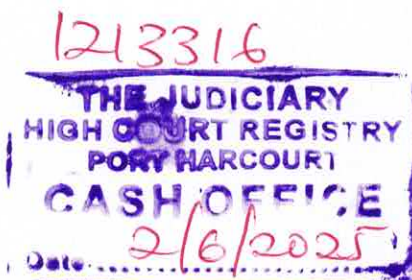 1213316
THE JUDICIARY
HIGH COURT REGISTRY
PORT HARCOURT
CASH OFFICE
Date 2/6/2025